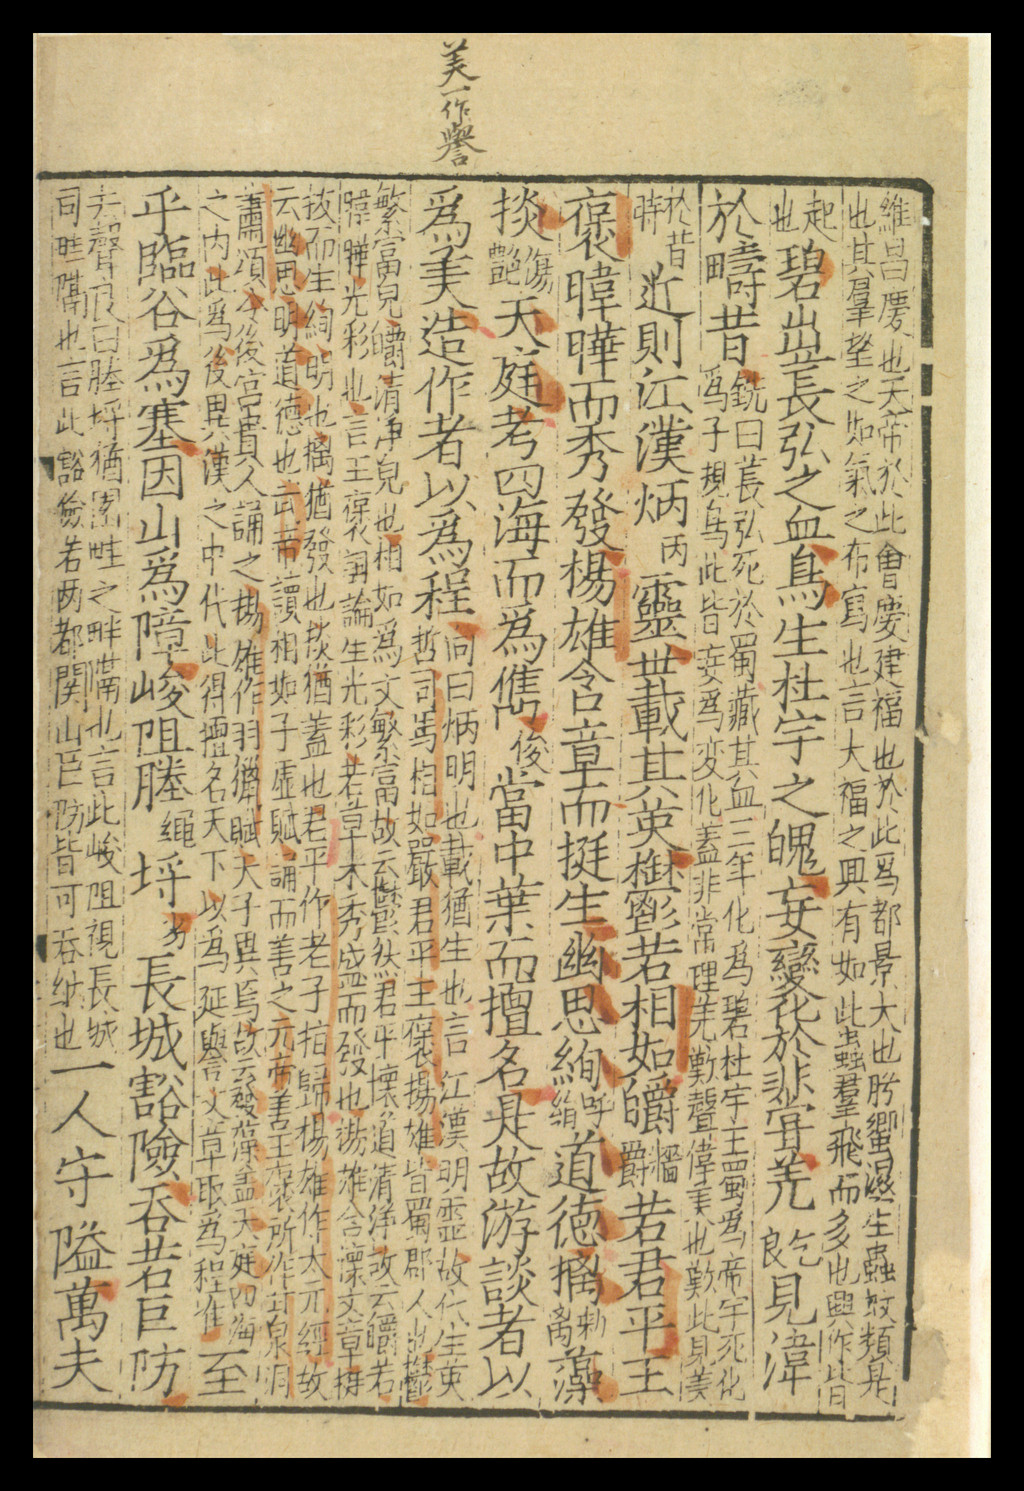 美一作譽
維昌慶也天帝於此會慶建福也於此爲都景大也肸蠁濕生蟲蚊類是
也其羣望之如氣之布寫也言大福之興有如此蟲羣飛而多也興作皆
起也碧出萇弘之血鳥生杜宇之魄妄變化於非常羌乞良見偉
於疇昔銑曰萇弘死於蜀藏其血三年化爲碧杜宇王蜀爲帝宇死化
爲子規鳥此皆妄爲变化蓋非常理羌歎聲偉美也歎此身美
於昔時近則江漢炳丙靈世載其英欝若相如皭牆爵若君平王
褒暐曄而秀發楊雄含章而挺生幽思絢呼絹道德摛勑离藻
掞傷艷天庭考四海而爲儁俊當中葉而擅名是故游談者以
爲美造作者以爲程向曰炳明也載猶生也言江漢明靈故代生英
哲司馬相如嚴君平王褒揚雄皆蜀郡人也欝
繁富皃皭清净皃也相如爲文繁富故云欝然君平懷道清淨故云皭若
暐曄光彩也言王褒詞論生光彩若草木秀盛而發也楊雄含懷文章挺
拔而生絢明也摛猶發也掞猶蓋也君平作老子指歸楊雄作太元經故
云幽思明道德也武帝讀相如子虛賦誦而善之元帝善王褒所作甘泉洞
簫頌令後宮貴人誦之楊雄作羽獵賦天子異焉故云發藻蓋天庭四海
之内此爲後異漢之中代此得擅名天下以爲延譽文章取爲程准至
乎臨谷爲塞因山爲障峻阻塍繩埒劣長城豁險吞若巨防
夫聲良曰塍埒猶園畦之畔隔也言此峻阻視長城
司畦隔也言此豁險若两都関山巨防皆可吞納也一人守隘萬夫